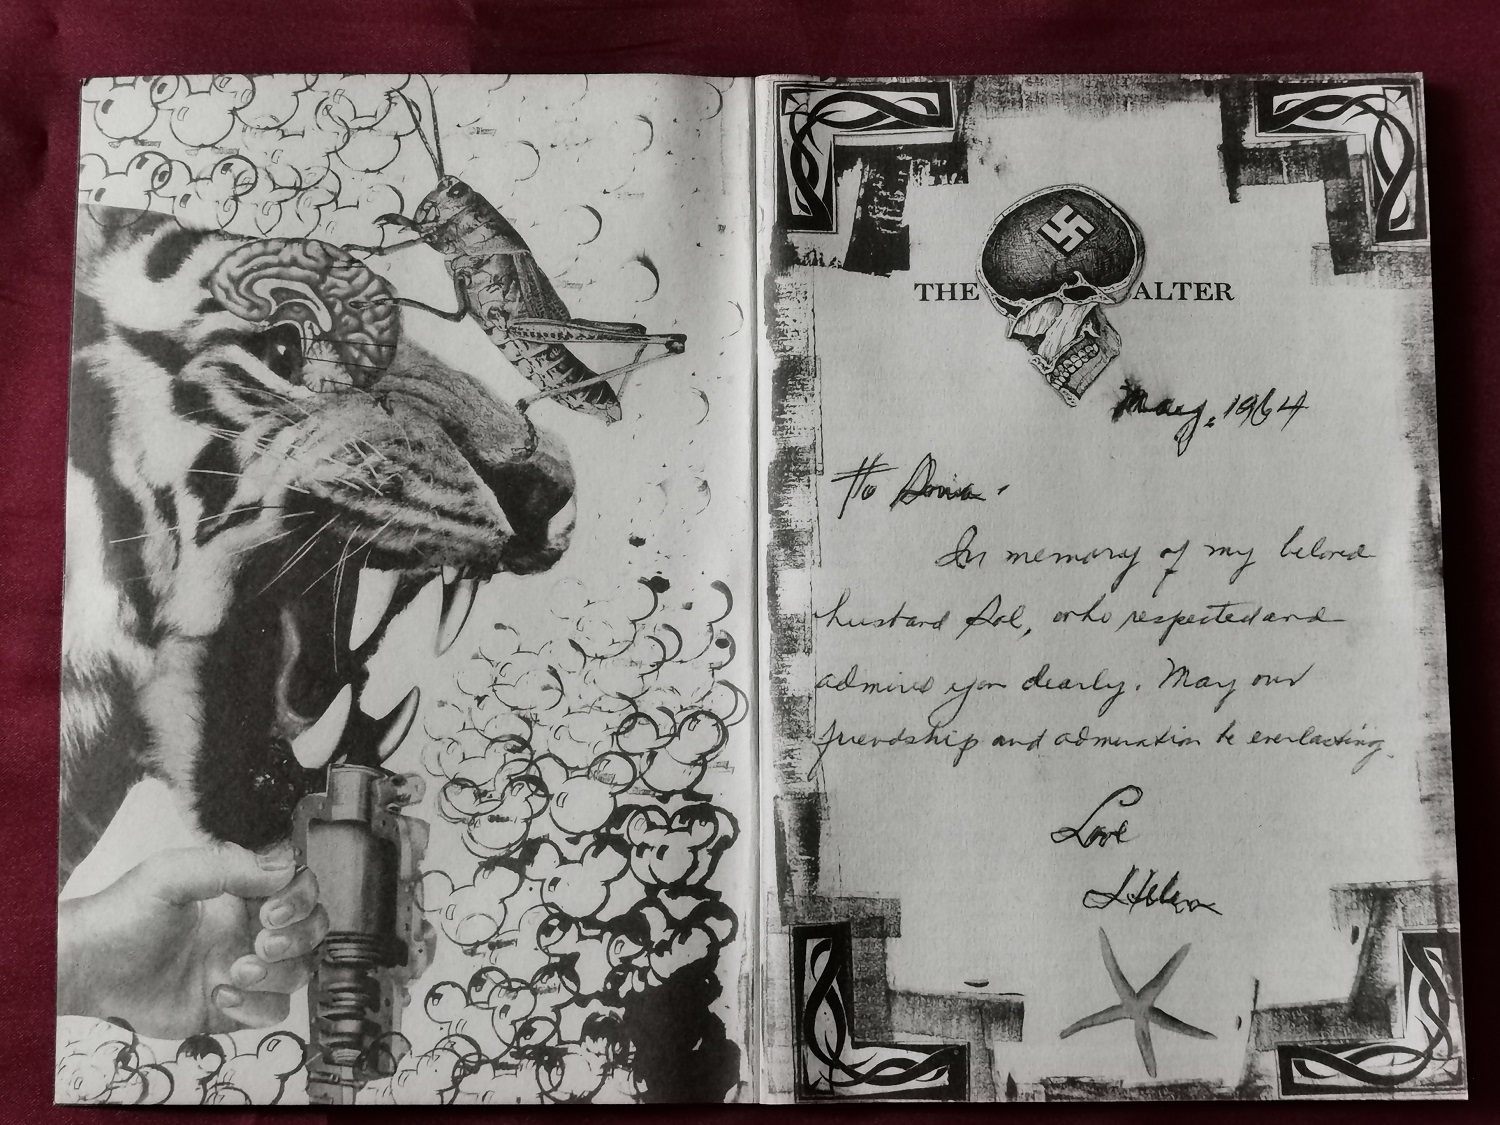 THE ALTER
May, 1964
To
In memory of my beloved
husband Sol, who respected and
admired you dearly. May our
friendship and admiration be everlasting.
Love
Helen